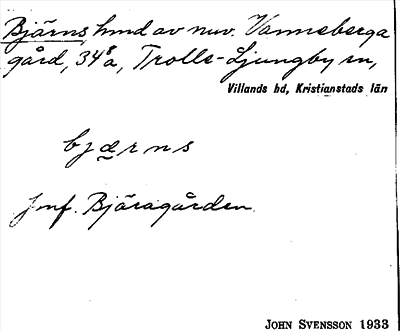 Bjärns, hmd av nuv. Vanneberga
gård, 34⁸a, Trolle-Ljungby sn,
Villands hd, Kristianstads län
bjærns
Jmf. Bjäragården.
JOHN SVENSSON 1933